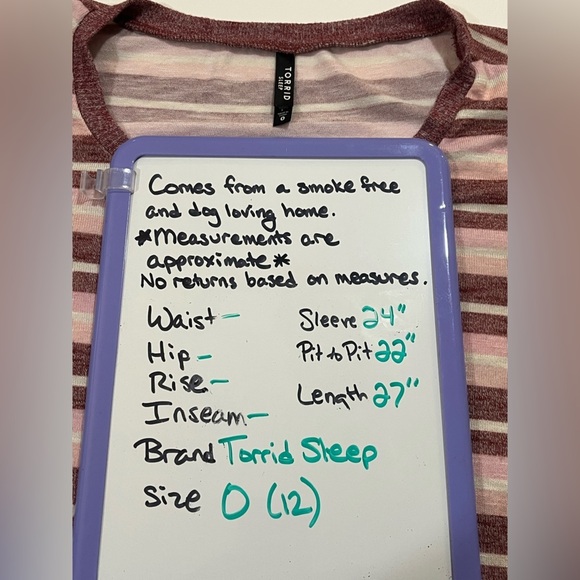 TORRID
SLEEP
0
Comes from a smoke free
and dog loving home.
*Measurements are
approximate*
No returns based on measures.
Waist -
Sleeve 24"
Hip -
Pit to Pit 22"
Rise -
Length 27"
Inseam -
Brand Torrid Sleep
Size 0 (12)